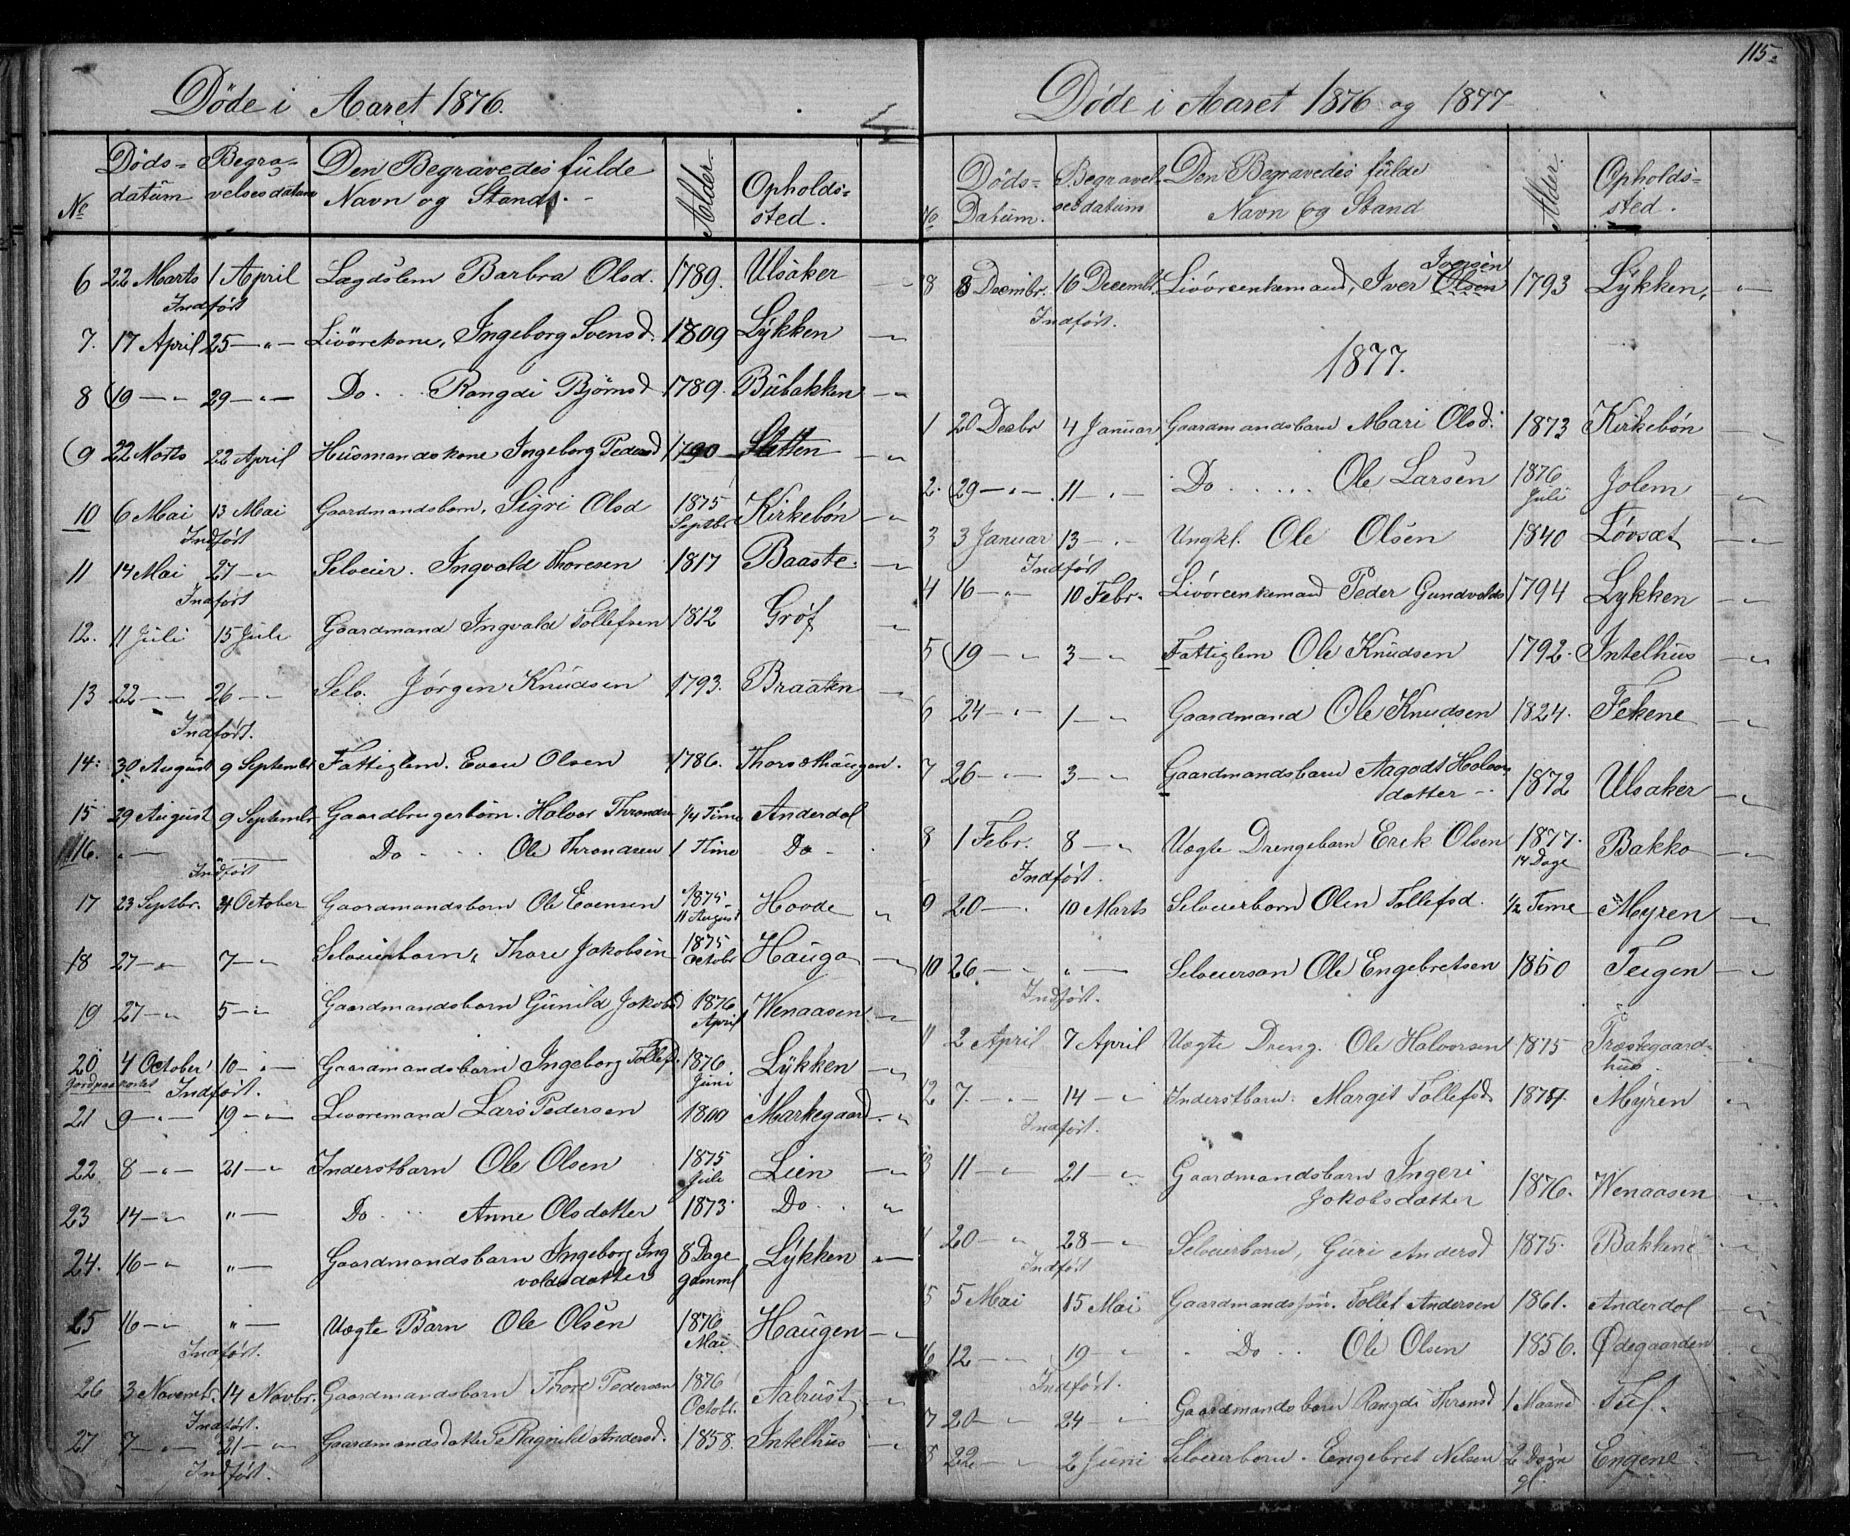 Döde i Aaret 1876.
№ Døds-datum Begra-velsesdatum Den Begravedes fulde Navn og Stand. Alder. Opholds-sted.
6 22 Marts 1 April Lægdslem Barbra Olsd. 1789. Ulsaker
Indført
7. 17 April 25 —"— Livörekone, Ingeborg Svensd. 1809 Lykken —"—
8 19 —"— 29 —"— Do. . . Rangdi Bjørnsd 1789. Bübakken —"—
9 22 Marts 22 April Husmandskone Ingeborg Pedersd 1790 Slatten —"—
10 6 Mai 13 Mai Gaardmandsbarn, Sigri Olsd 1875 Septbr Kirkebøn —"—
Indført
11 14 Mai 27 —"— Selveier. Ingvald Thoresen 1817 Baaste. —"—
Indført
12. 11 Juli 15 Juli Gaardmand Ingvald Tollefsen 1812 Gróf "
13 22 —"— 26 —"— Selv. Jørgen Knudsen 1793. Braaten —"—
Indført.
14. 30 August 9 Septembr Fattiglem. Even Olsen 1786. Thorsethaugen.
15 29 August 9 Septembr Gaardbrugerbørn. Halvor Throndsen 1/4 Time Anderdal
16. "— —— Do - . . . Ole Throndsen 1 Time Do -
Indført
17 23 Septbr. 4 October Gaardmandsbarn Ole Evensen 1875 11 August Hovde "
18 27 —"— 7 —"— Selveierbarn, Thore Jakobsen 1875 Octobr Hauga —"—
19 27 —"— 5 —"— Gaardmandsbarn Gunild Jakobsd 1876 April Wenaasen —"—
20 4 October 10 —"— Gaardmandsbarn Ingeborg Tollefsd. 1876 Juni Lykken —"—
Jordpaakastet Indført.
21 9 —"— 19 —"— Livöremand Lars Pedersen 1800 Markegaard —"—
22 8 —"— 21 —"— Inderstbarn Ole Olsen 1875 Juli Lien —"—
23 14 —"— "— Do. . . . Anne Olsdatter 1873. Do. . . "
24. 16 —"— "— Gaardmandsbarn Ingeborg Ing
voldsdatter 8 Dage gamml Lykken —"—
25 16 —"— "— Uægte Barn Ole Olsen 1876 Mai Haugen —"—
Indført.
26 3 Novembr. 14 Novbr. Gaardmandsbarn Thore Pedersen 1876 Octobr. Aalrust —"—
Indført.
27 7 —"— 21 —"— Gaardmandsdatter Ragnild Andersd. 1858. Intelhus —"—
Indført.
115.
Döde i Aaret 1876 og 1877
№ Døds-Datum. Begravel-sesdatum Den Begravedes fulde Navn og Stand Alder. Opholds-sted.
8 8 Decembr. 16 Decembr. Livöreenkemand, Iver Olsen Iversen 1793 Lykken, —"—
Indført.
1877.
1 20 Decbr 4 Januar Gaardmandsbarn Mari Olsd. 1873 Kirkebøn —"—
2. 29 —"— 11 —"— Do . . . . . Ole Larsen 1876 Juli Jolem —"—
3 3 Januar 13 —"— Ungkl. Ole Olsen 1840 Løvsæt —"—
Indført
4 16 —"— 10 Febr. Livöreenkemand Peder Gundvalds 1794 Lykken —"—
5 19 —"— 3 —"— Fattiglem Ole Knudsen 1792. Intelhus —"—
6 24 —"— 1 —"— Gaardmand Ole Knudsen 1824. Fekene —"—
7 26 —"— 3 —"— Gaardmandsbarn Aagodt Halvors
datter 1872 Ulsaker —"—
8 1 Febr. 8 —"— Uægte Drengebarn Erik Olsen 1877. 14 Dage Bakko —"—
Indført.
9 20 —"— 10 Marts Selveierbarn Olen Tollefsd. 1/2 Time Myren —"—
10 26 —"— "— Selveiersøn Ole Engebretsen 1850 Teigen —"—
Indført.
11 2 April 7 April Uægte Dreng. Ole Halvorsen 1875 Præstegaard-
hus. —"—
12 7. —"— 14 —"— Inderstbarn. Margit Tollefsd. 1874. Myren —"—
Indført.
13 11 —"— 21 —"— Gaardmandsbarn Ingeri
Jakobsdatter 1876. Wenaasen —"—
20 —"— 28 —"— Selveierbarn, Guri Andersd 1875. Bakkene —"—
Indført
5 5 Mai 15 Mai Gaardmandssøn. Tollef Andersen 1861. Anderdal —"—
6 12 —"— 19 —"— Do . . Ole Olsen 1856. Ødegaarden —"—
Indført.
7 20 —"— 24 —"— Gaardmandsbarn Rangdi Thronsd 1 Maand Tuf. —"—
8 22 —"— 2 Juni Selveierbarn. Engebret Nilsen 2 Døgn gl. Engene —"—